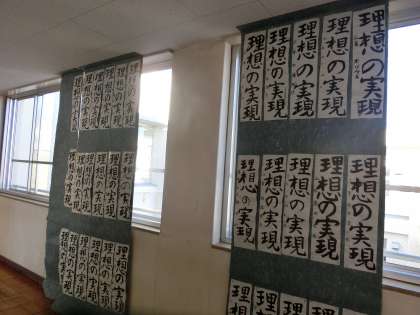 理想の実現
理想の実現
理想の実現
理想の実現
理想の実現
理想の実現
理想の実現
理想の実現
理想の実現
理想の実現
理想の実現
理想の実現
理想の実現
理想の実現
理想の実現
理想の実現
理想の実現
理想の実現
理想の実現
理想の実現
理想の実現
理想の実現
理想の実現
理想の実現
理想
理想
理想
理想